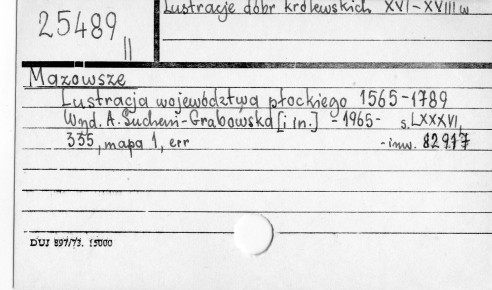 Lustracje dóbr królewskich XVI-XVIII w
25489
II
Mazowsze
Lustracja województwa płockiego 1565-1789
Wyd. A. Sucheni-Grabowska [i in.] -1965- s. LXXXVI,
335, mapa 1, err -inw. 82917
DUJ 897/73. 15000